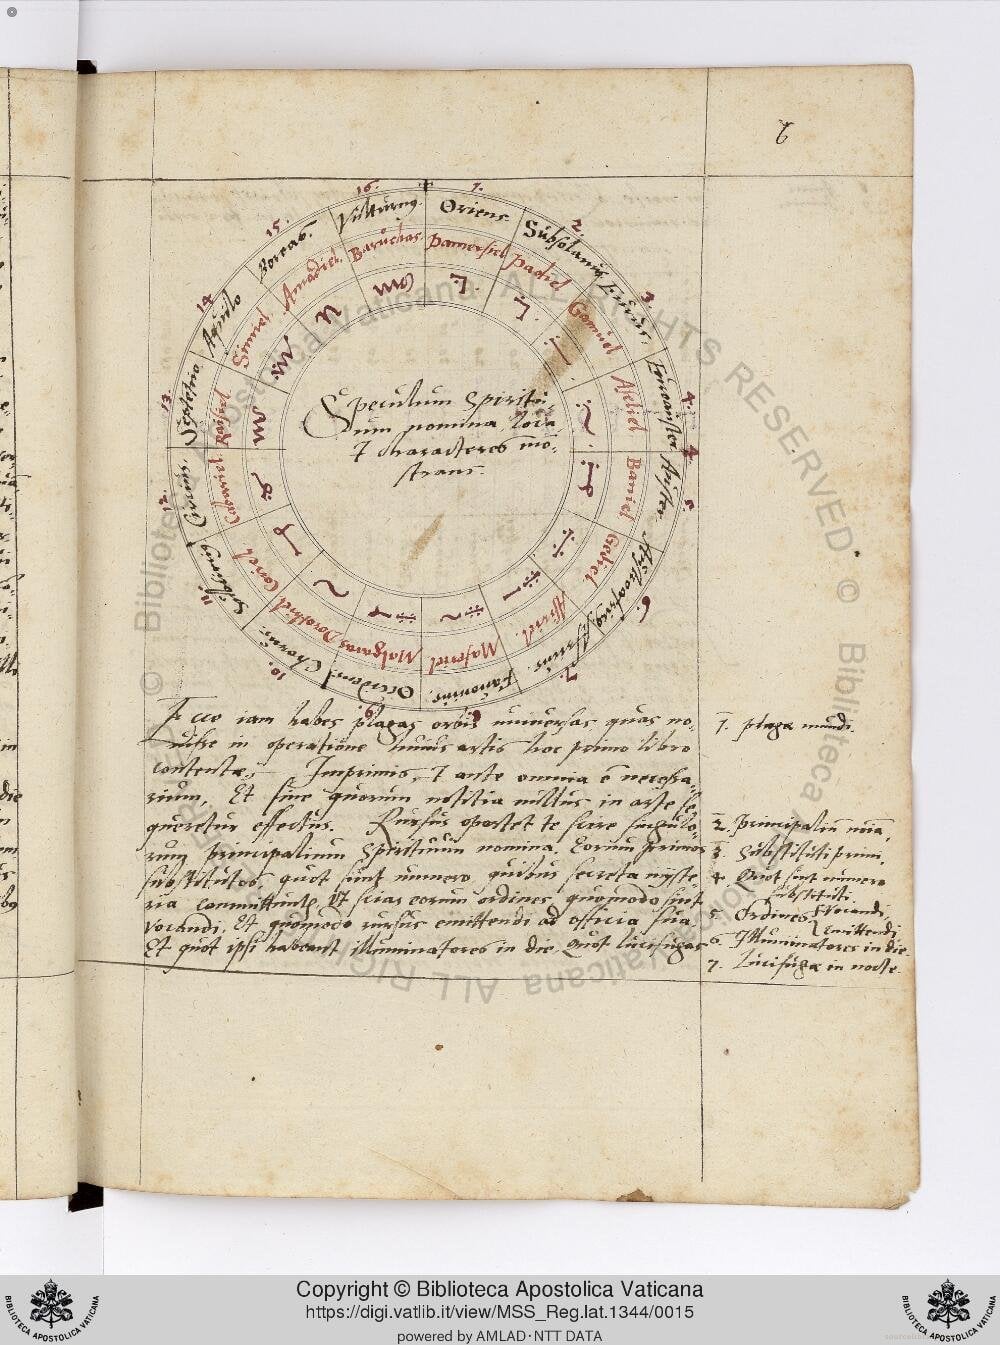 6
16.
1.
2.
3.
4.
4
5.
6.
7.
8
9.
10.
11.
12.
13.
14.
15.
Vulturnus
Oriens
Subsolanus
Eurus.
Euroauster
Auster
Austroafricus
Africus.
Fauonius.
Occidens.
Chorus.
Circius.
Septētrio
Aquilo
Boreas.
Baruchas
Pamersiel
Padiel
Camuel
Aseliel
Barmiel
Gediel
Asiriel.
Maseriel
Malgaras
Dorothiel
Camiel.
Caspariel.
Raisiel
Simiel.
Amadiel.
Speculum Spiritu-
um nomina loca,
& characteres mō-
strans.
Ecce iam habes plagas orbis uniuersas quas no-
uisse in operatione huius artis hoc primo libro
contentæ. Imprimis, & ante omnia ē necessa-
rium, Et sine quorum notitia nullus in arte se-
queretur effectus. Rursus oportet te scire singulo-
rum principalium Spirituum nomina. Eorum primos
substitutos, quot sunt numero quibus secreta myste-
ria committunt. Ut scias eorum ordines, quomodo sint
vocandi, Et quomodo rursus emittendi ad officia sua
Et quot ipsi habeant illuminatores in die, Quot lucifugas
1. plaga mundi.
2. Principaliū nīa,
3. Substituti primi,
4. Quot sint numero
substituti
5. Ordines Vocandi,
Emittendi
6. Illuminatores in die
7. Lucifugæ in nocte
© Biblioteca Apostolica Vaticana ALL RIGHTS RESERVED © Biblioteca Apostolica Vaticana ALL RIGHTS RESERVED
Copyright © Biblioteca Apostolica Vaticana
https://digi.vatlib.it/view/MSS_Reg.lat.1344/0015
powered by AMLAD·NTT DATA
BIBLIOTECA APOSTOLICA VATICANA
BIBLIOTECA APOSTOLICA VATICANA